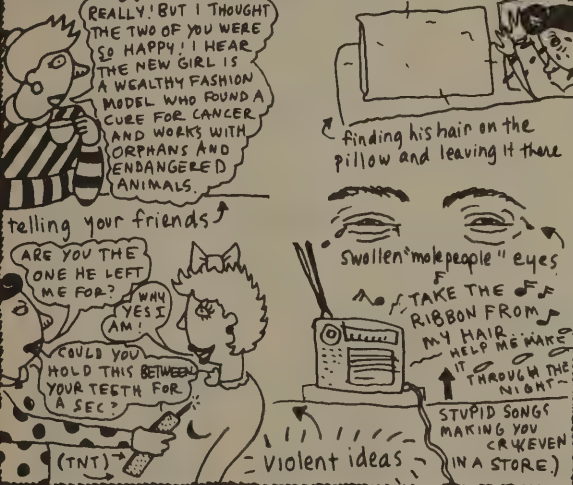 REALLY! BUT I THOUGHT
THE TWO OF YOU WERE
SO HAPPY! I HEAR
THE NEW GIRL IS
A WEALTHY FASHION
MODEL WHO FOUND A
CURE FOR CANCER
AND WORKS WITH
ORPHANS AND
ENDANGERED
ANIMALS.
telling your friends
finding his hair on the
pillow and leaving it there
swollen "molepeople" eyes
ARE YOU THE
ONE HE LEFT
ME FOR?
WHY
YES I
AM!
COULD YOU
HOLD THIS BETWEEN
YOUR TEETH FOR
A SEC?
(TNT)
violent ideas
TAKE THE
RIBBON FROM
MY HAIR....
HELP ME MAKE
IT
THROUGH THE
NIGHT~
STUPID SONGS
MAKING YOU
CRY (EVEN
IN A STORE.)